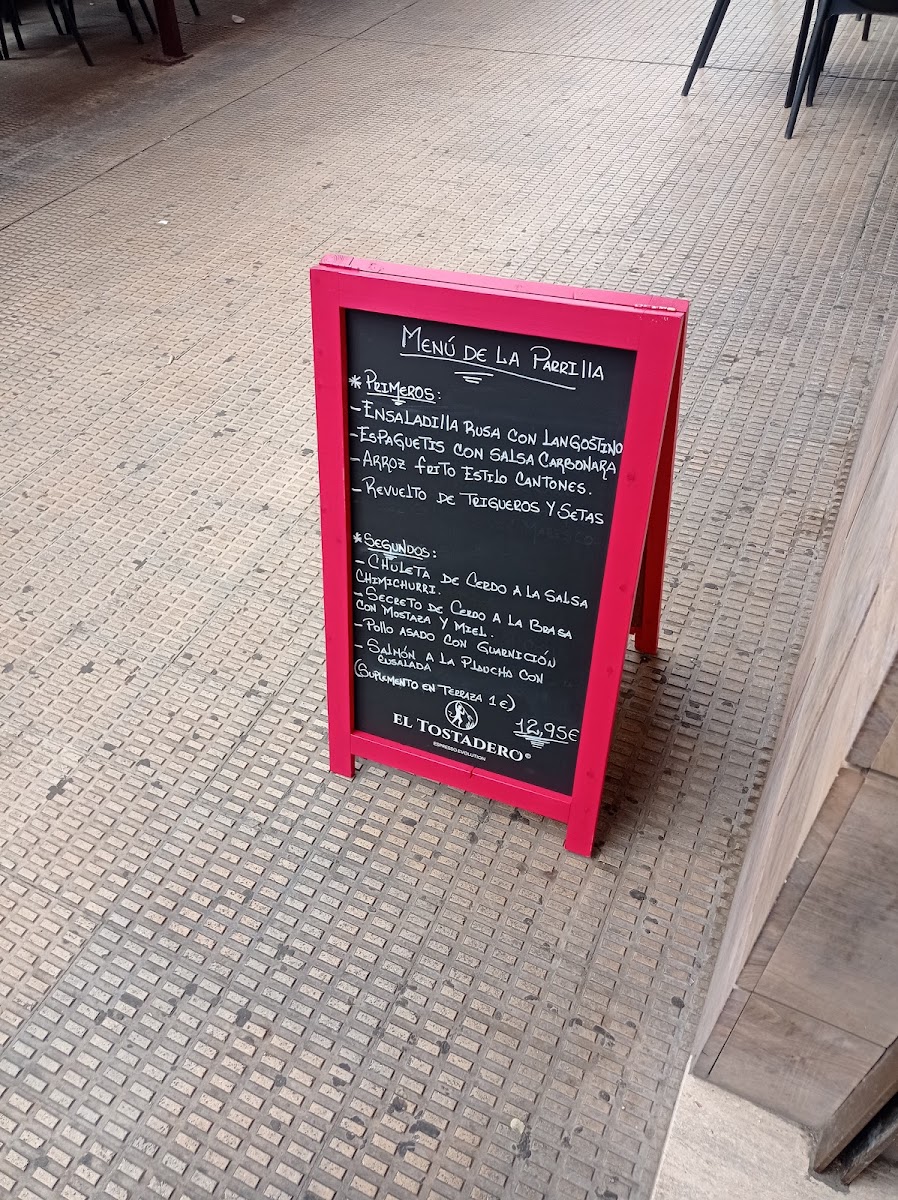 MENÚ DE LA PARRIllA
* PRIMEROS:
- ENSALADIllA RUSA CON LANGOSTINO
- ESPAGUETIS CON SALSA CARBONARA
- ARROZ FRITO ESTILO CANTONES.
- REVUELTO DE TRIGUEROS Y SETAS
* SEGUNDOS:
- CHULETA DE CERDO A LA SALSA
CHIMICHURRI.
- SECRETO DE CERDO A LA BRASA
CON MOSTAZA Y MIEL.
- POLLO ASADO CON GUARNICIÓN
- SALMÓN A LA PLANCHA CON
ENSALADA
(SUPLEMENTO EN TERRAZA 1€)
12,95€
EL TOSTADERO
ESPRESSO EVOLUTION